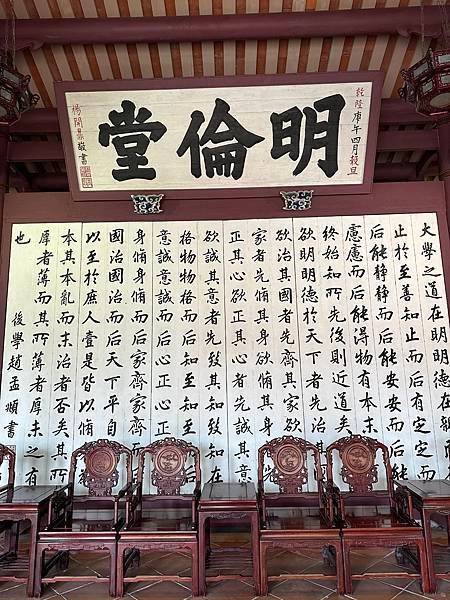 乾隆庚午四月穀旦
明倫堂
楊開鼎敬書
大學之道在明明德在
止於至善知止而后有定定而
后能靜靜而后能安安而后能
慮慮而后能得物有本末
終始知所先後則近道矣
欲明明德於天下者先治
欲治其國者先齊其家欲
家者先脩其身欲脩其身
正其心欲正其心者先誠
欲誠其意者先致其知致知在
格物物格而后知至知至
意誠意誠而后心正心正
身脩身脩而后家齊家齊而
國治國治而后天下平自
以至於庶人壹是皆以脩
本其本亂而末治者否矣其所
厚者薄而其所薄者厚未之有
也 後學趙孟頫書